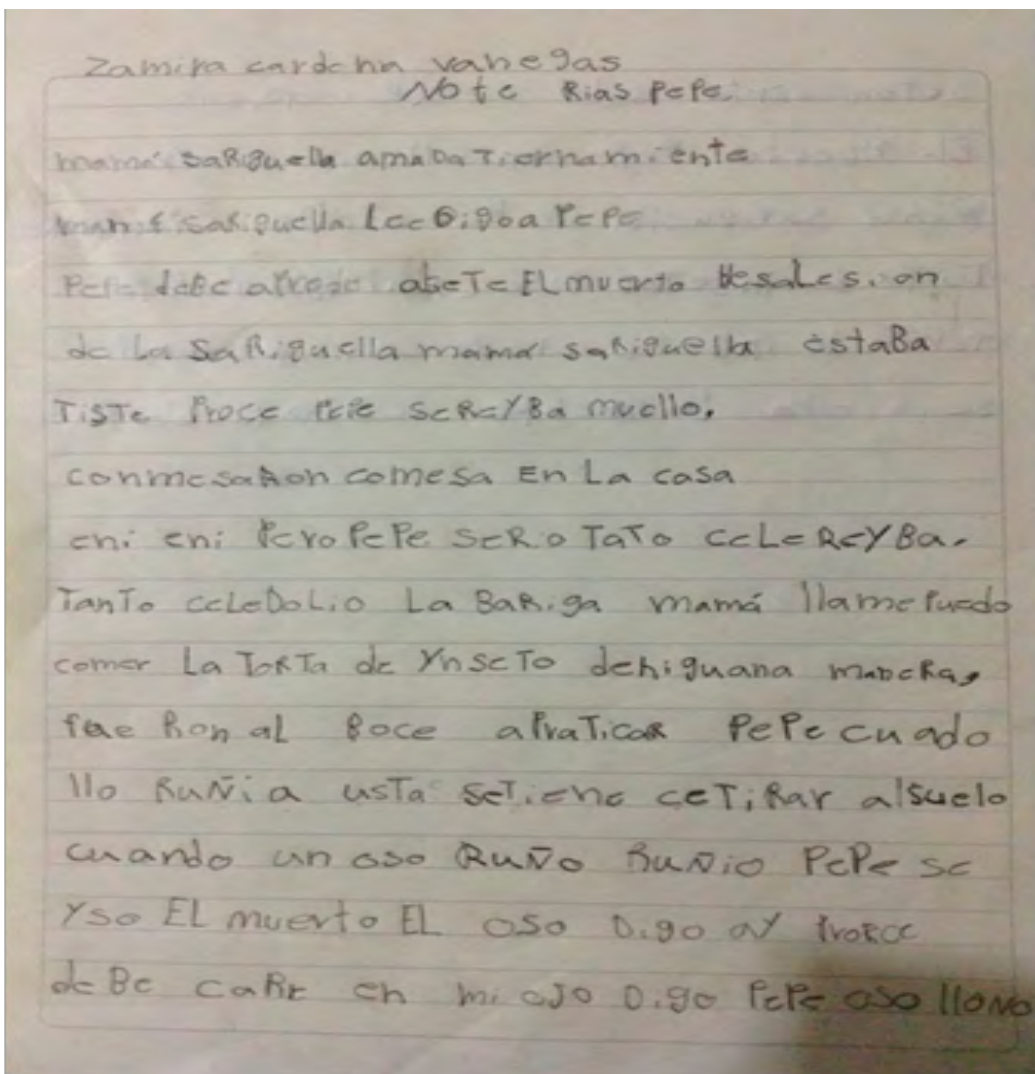 Zamira cardona vanegas
No te Rias PePe
mamá saRiguella amaba Tiernamiente
mamá saRiguella Lee Digo a PePe
PePe debe alrede abeTe EL muerto Besalesion
de La SaRiguella mamá saRiguella estaBa
TisTe Proce PePe seReYBa muello,
conmesaRon comesa En La casa
eni eni Pero PePe SeRio TaTo ceLe ReYBa.
TanTo ceLeDoLio La BaRiga mamá llamePuedo
comer La ToRTa de YnseTo dehiguana maDeRa,
fueRon aL Boce a PraTicaR PePe cuado
llo RuÑia usTa seTiene ceTiRar alsuelo
cuando un oso RuÑo RuÑio PePe se
Yso EL muerto EL oso Digo aY ProRce
deBe caRe en mi oJo Digo PePe oso lloNo